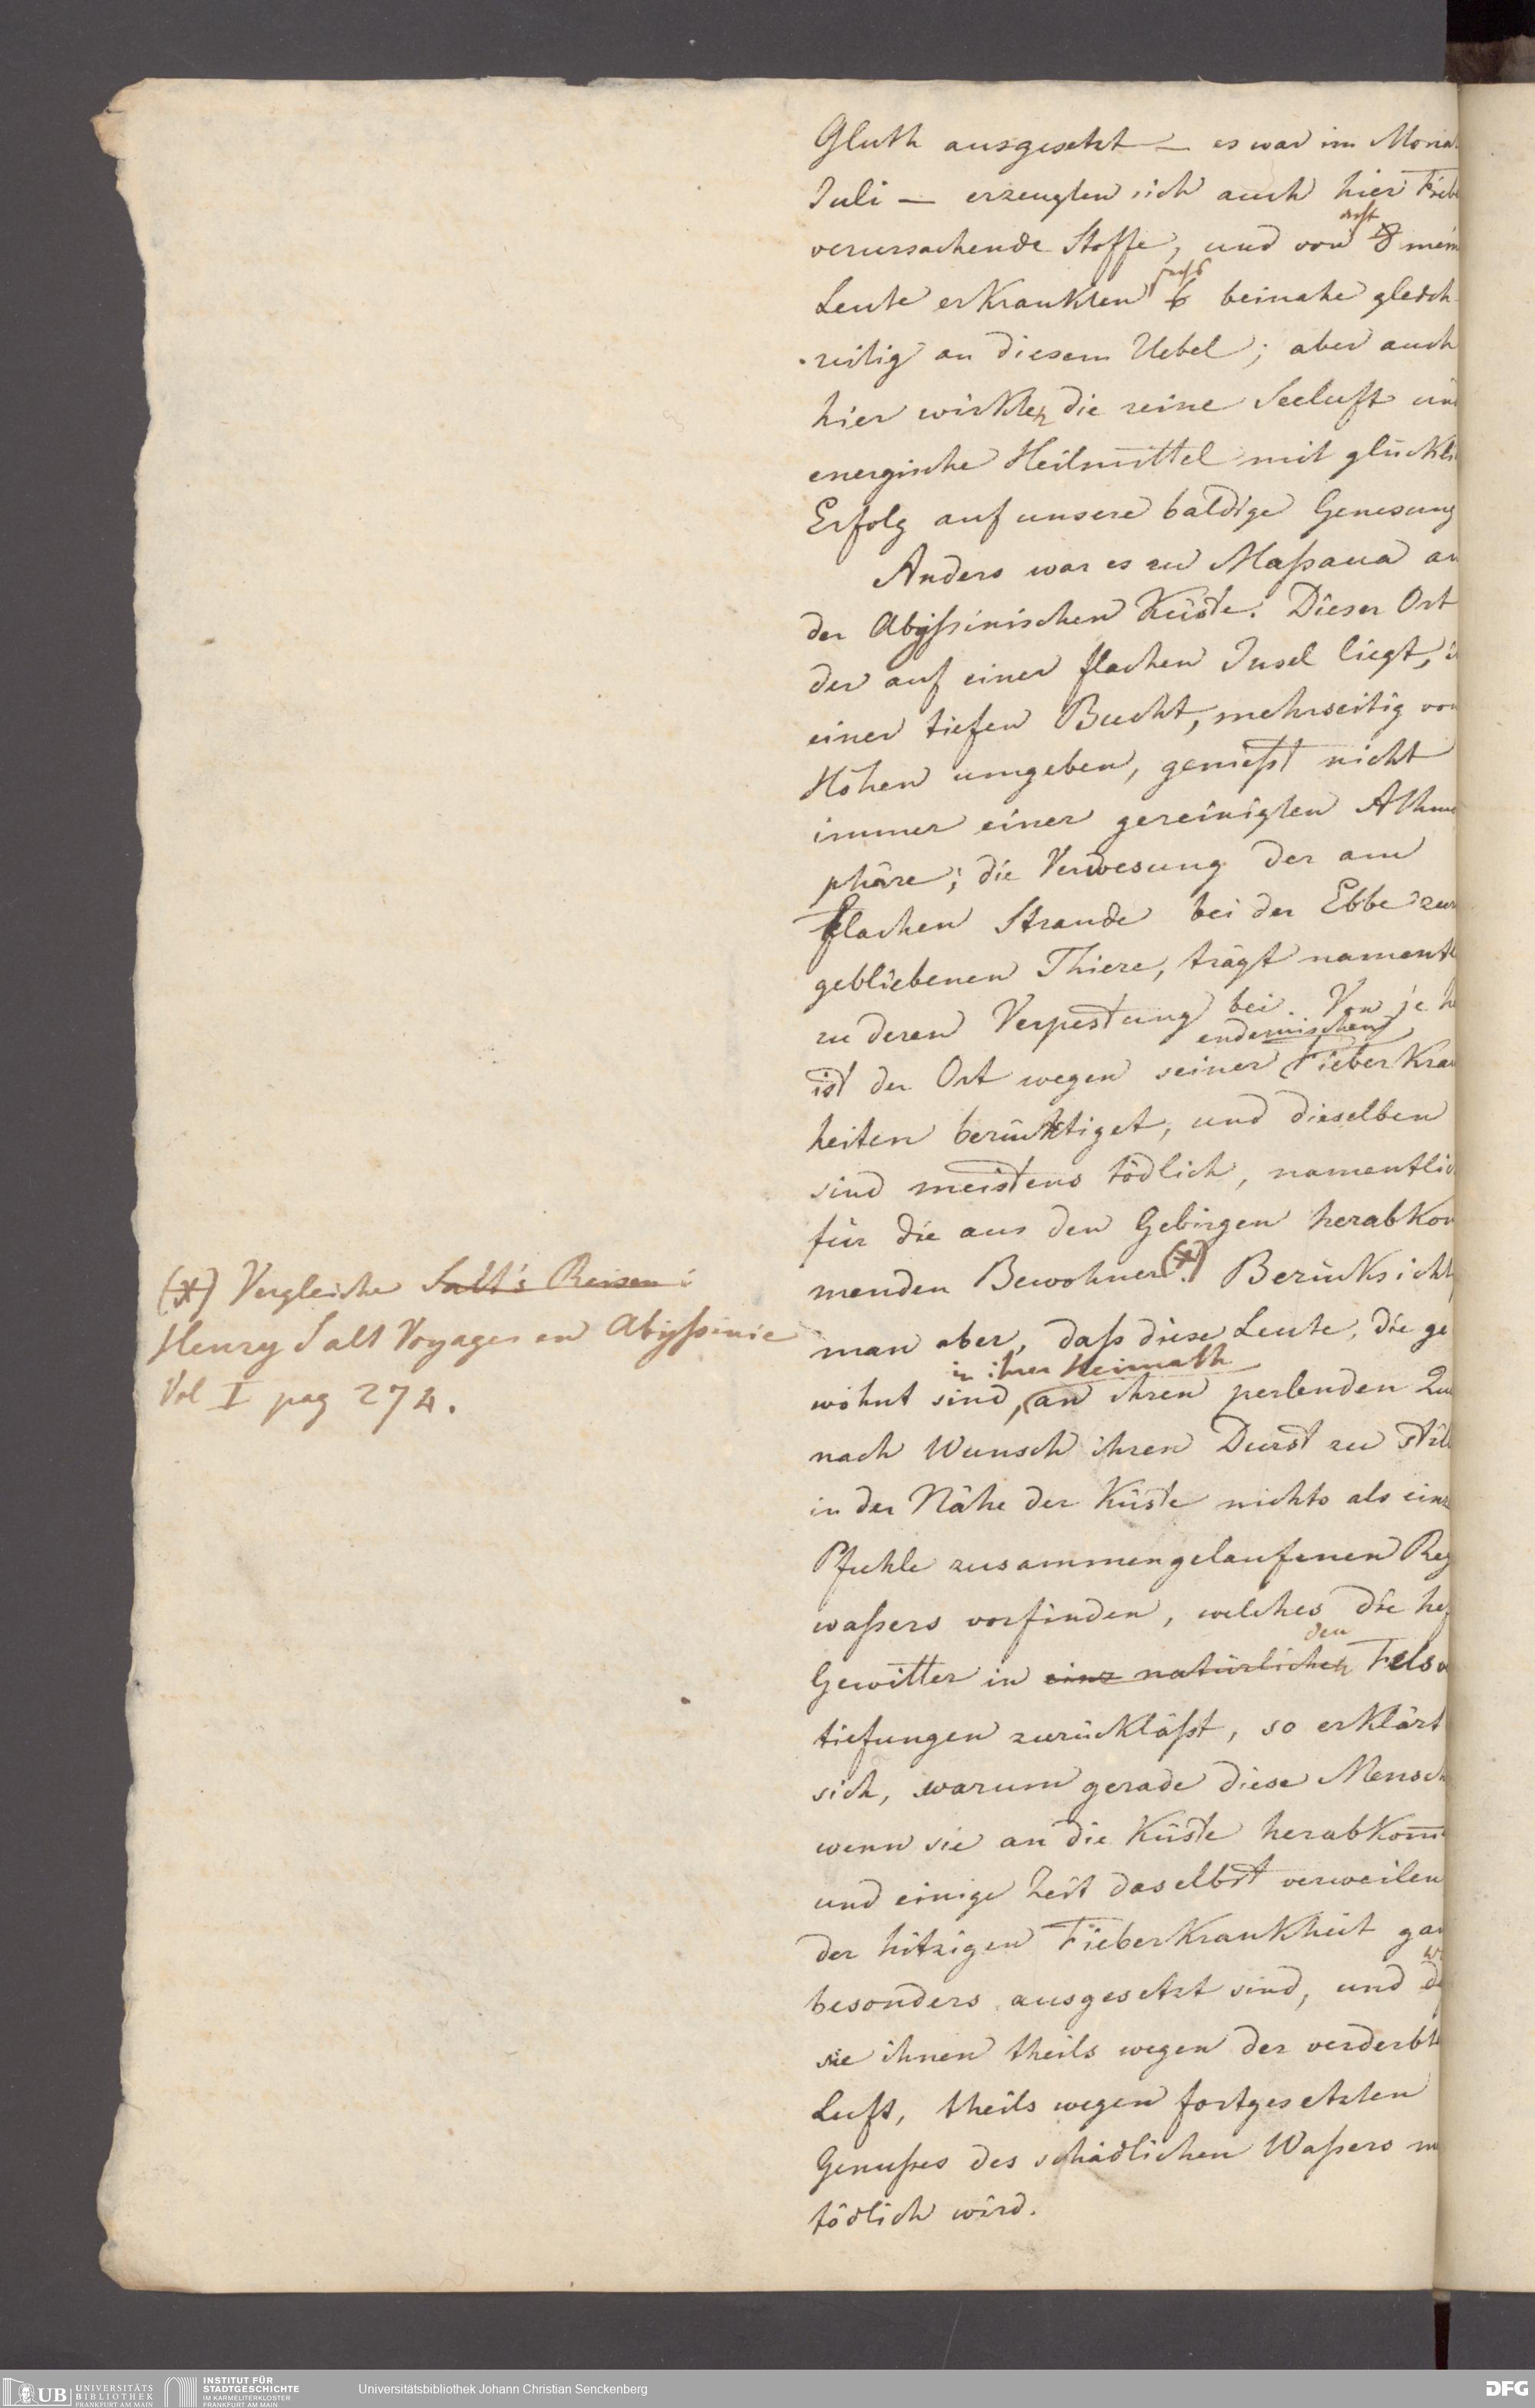 Gluth ausgesetzt — es war im Mona
Juli — erzeugten sich auch hier Fieb
acht
verursachende Stoffe, und von 8 mein
sechs
Leute erkrankten 6 beinahe gleich
zeitig an diesem Uebel; aber auch
hier wirkten die reine Seeluft und
energische Heilmittel mit glückli
Erfolg auf unsere baldige Genesung
Anders war es zu Maßaua an
der Abyßinischen Küste. Dieser Ort
der auf einer flachen Insel liegt, i
einer tiefen Bucht, mehrseitig von
Höhen umgeben, genießt nicht
immer einer gereinigten Athmo
phäre; die Verwesung der am
flachen Strande bei der Ebbe zur
gebliebenen Thiere, trägt namentl
zu deren Verpestung bei. Von je h
endemischen
ist der Ort wegen seiner Fieber Kran
heiten berüchtiget, und dieselben
sind meistens tödlich, namentlic
für die aus den Gebirgen herabkom
menden Bewohner (*). Berücksicht
(*) Vergleiche Salt's Reisen :
Henry Salt Voyages en Abyßinie
Vol I pag 274.
man aber, daß diese Leute, die ge
in ihrer Heimath
wöhnt sind, an ihren perlenden Qu
nach Wunsch ihren Durst zu stil
in der Nähe der Küste nichts als einz
Pfuhle zusammengelaufenen Reg
waßers vorfinden, welches die hef
den
Gewitter in eine natürlichen Felsv
tiefungen zurückläßt, so erklärt
sich, warum gerade diese Mensch
wenn sie an die Küste herabkom
und einige Zeit daselbst verweilen
der hitzigen Fieberkrankheit gan
w
besonders ausgesetzt sind, und d
sie ihnen theils wegen der verderbt
Luft, theils wegen fortgesetzten
Genußes des schädlichen Waßers m
tödlich wird.
UB UNIVERSITÄTS
BIBLIOTHEK
FRANKFURT AM MAIN
INSTITUT FÜR
STADTGESCHICHTE
IM KARMELITERKLOSTER
FRANKFURT AM MAIN
Universitätsbibliothek Johann Christian Senckenberg
DFG